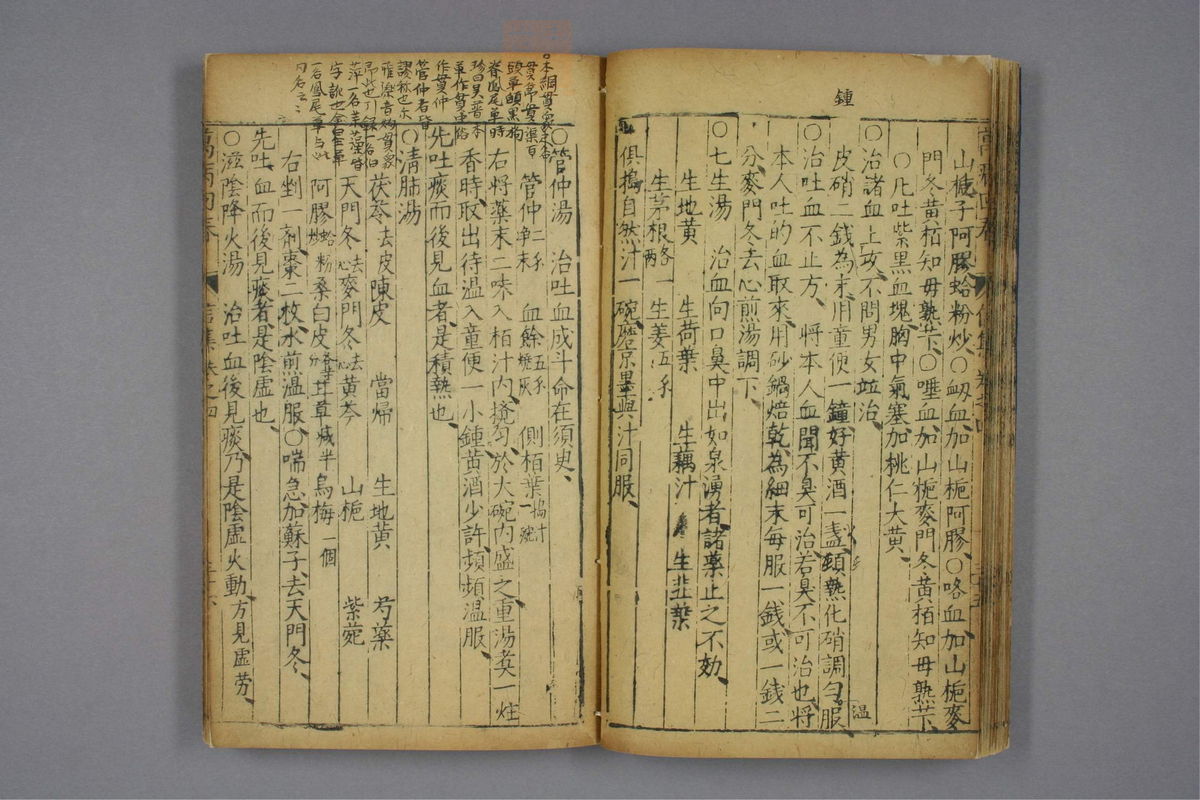 鍾
山梔子阿膠蛤粉炒○衂血加山梔阿膠○咯血加山梔麥
門冬黄栢知毋熟苄○唾血加山梔麥門冬黄栢知毋熟苄
○凡吐紫黑血塊胸中氣塞加桃仁大黄
○治諸血上攻不問男女竝治
皮硝二錢為末用童便一鐘好黄酒一盞頓熱化硝調勻服
温
○治吐血不止方 將本人血聞不臭可治若臭不可治也將
本人吐的血取來用砂鍋焙乾為細末每服一錢或一錢二
分麥門冬去心煎湯調下
○七生湯 治血向口鼻中出如泉湧者諸藥止之不効
生地黄 生荷葉 生藕汁 生韭葉
生茅根各一両 生姜五錢
俱搗自然汁一碗磨京墨與汁同服
○管仲湯 治吐血成斗命在須臾
管仲二錢半末 血餘五錢燒灰 側栢葉搗汁一碗
右將藥末二味入栢汁内攪勻於大碗内盛之重湯煑一炷
香時取出待温入童便一小鍾黄酒少許頻頻温服
先吐痰而後見血者是積熱也
○清肺湯
茯苓去皮 陳皮 當帰 生地黄 芍藥
天門冬去心 麥門冬去心 黄芩 山梔 紫菀
阿膠蛤粉炒 桑白皮各等分 甘草減半 烏梅一個
右剉一劑棗二枚水煎温服○喘急加蘇子去天門冬
先吐血而後見痰者是陰虛也
○滋陰降火湯 治吐血後見痰乃是陰虛火動方見虛劳